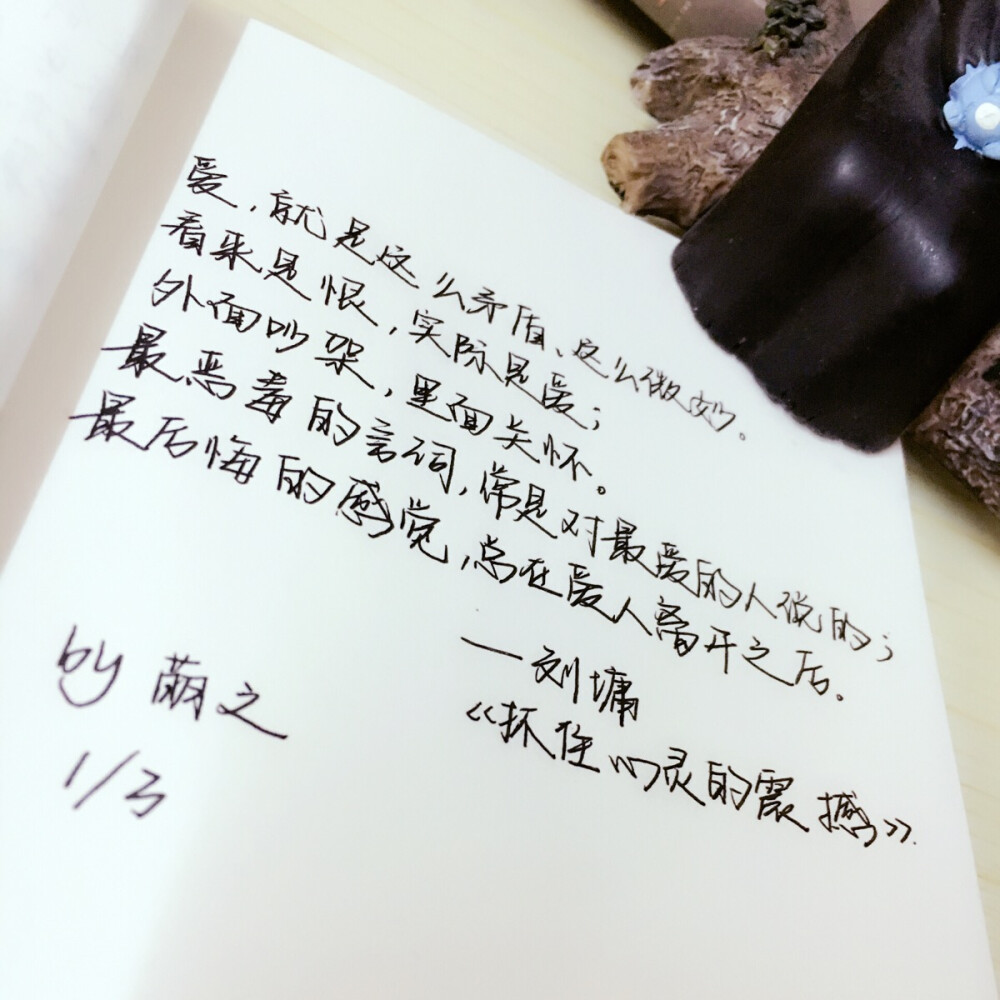 爱，就是这么矛盾、这么微妙。
看来是恨，实际是爱；
外面吵架，里面关怀。
最恶毒的言词，常是对最爱的人说的；
最后悔的感觉，总在爱人离开之后。
—刘墉
《抓住心灵的震撼》
by 萌之
1/3